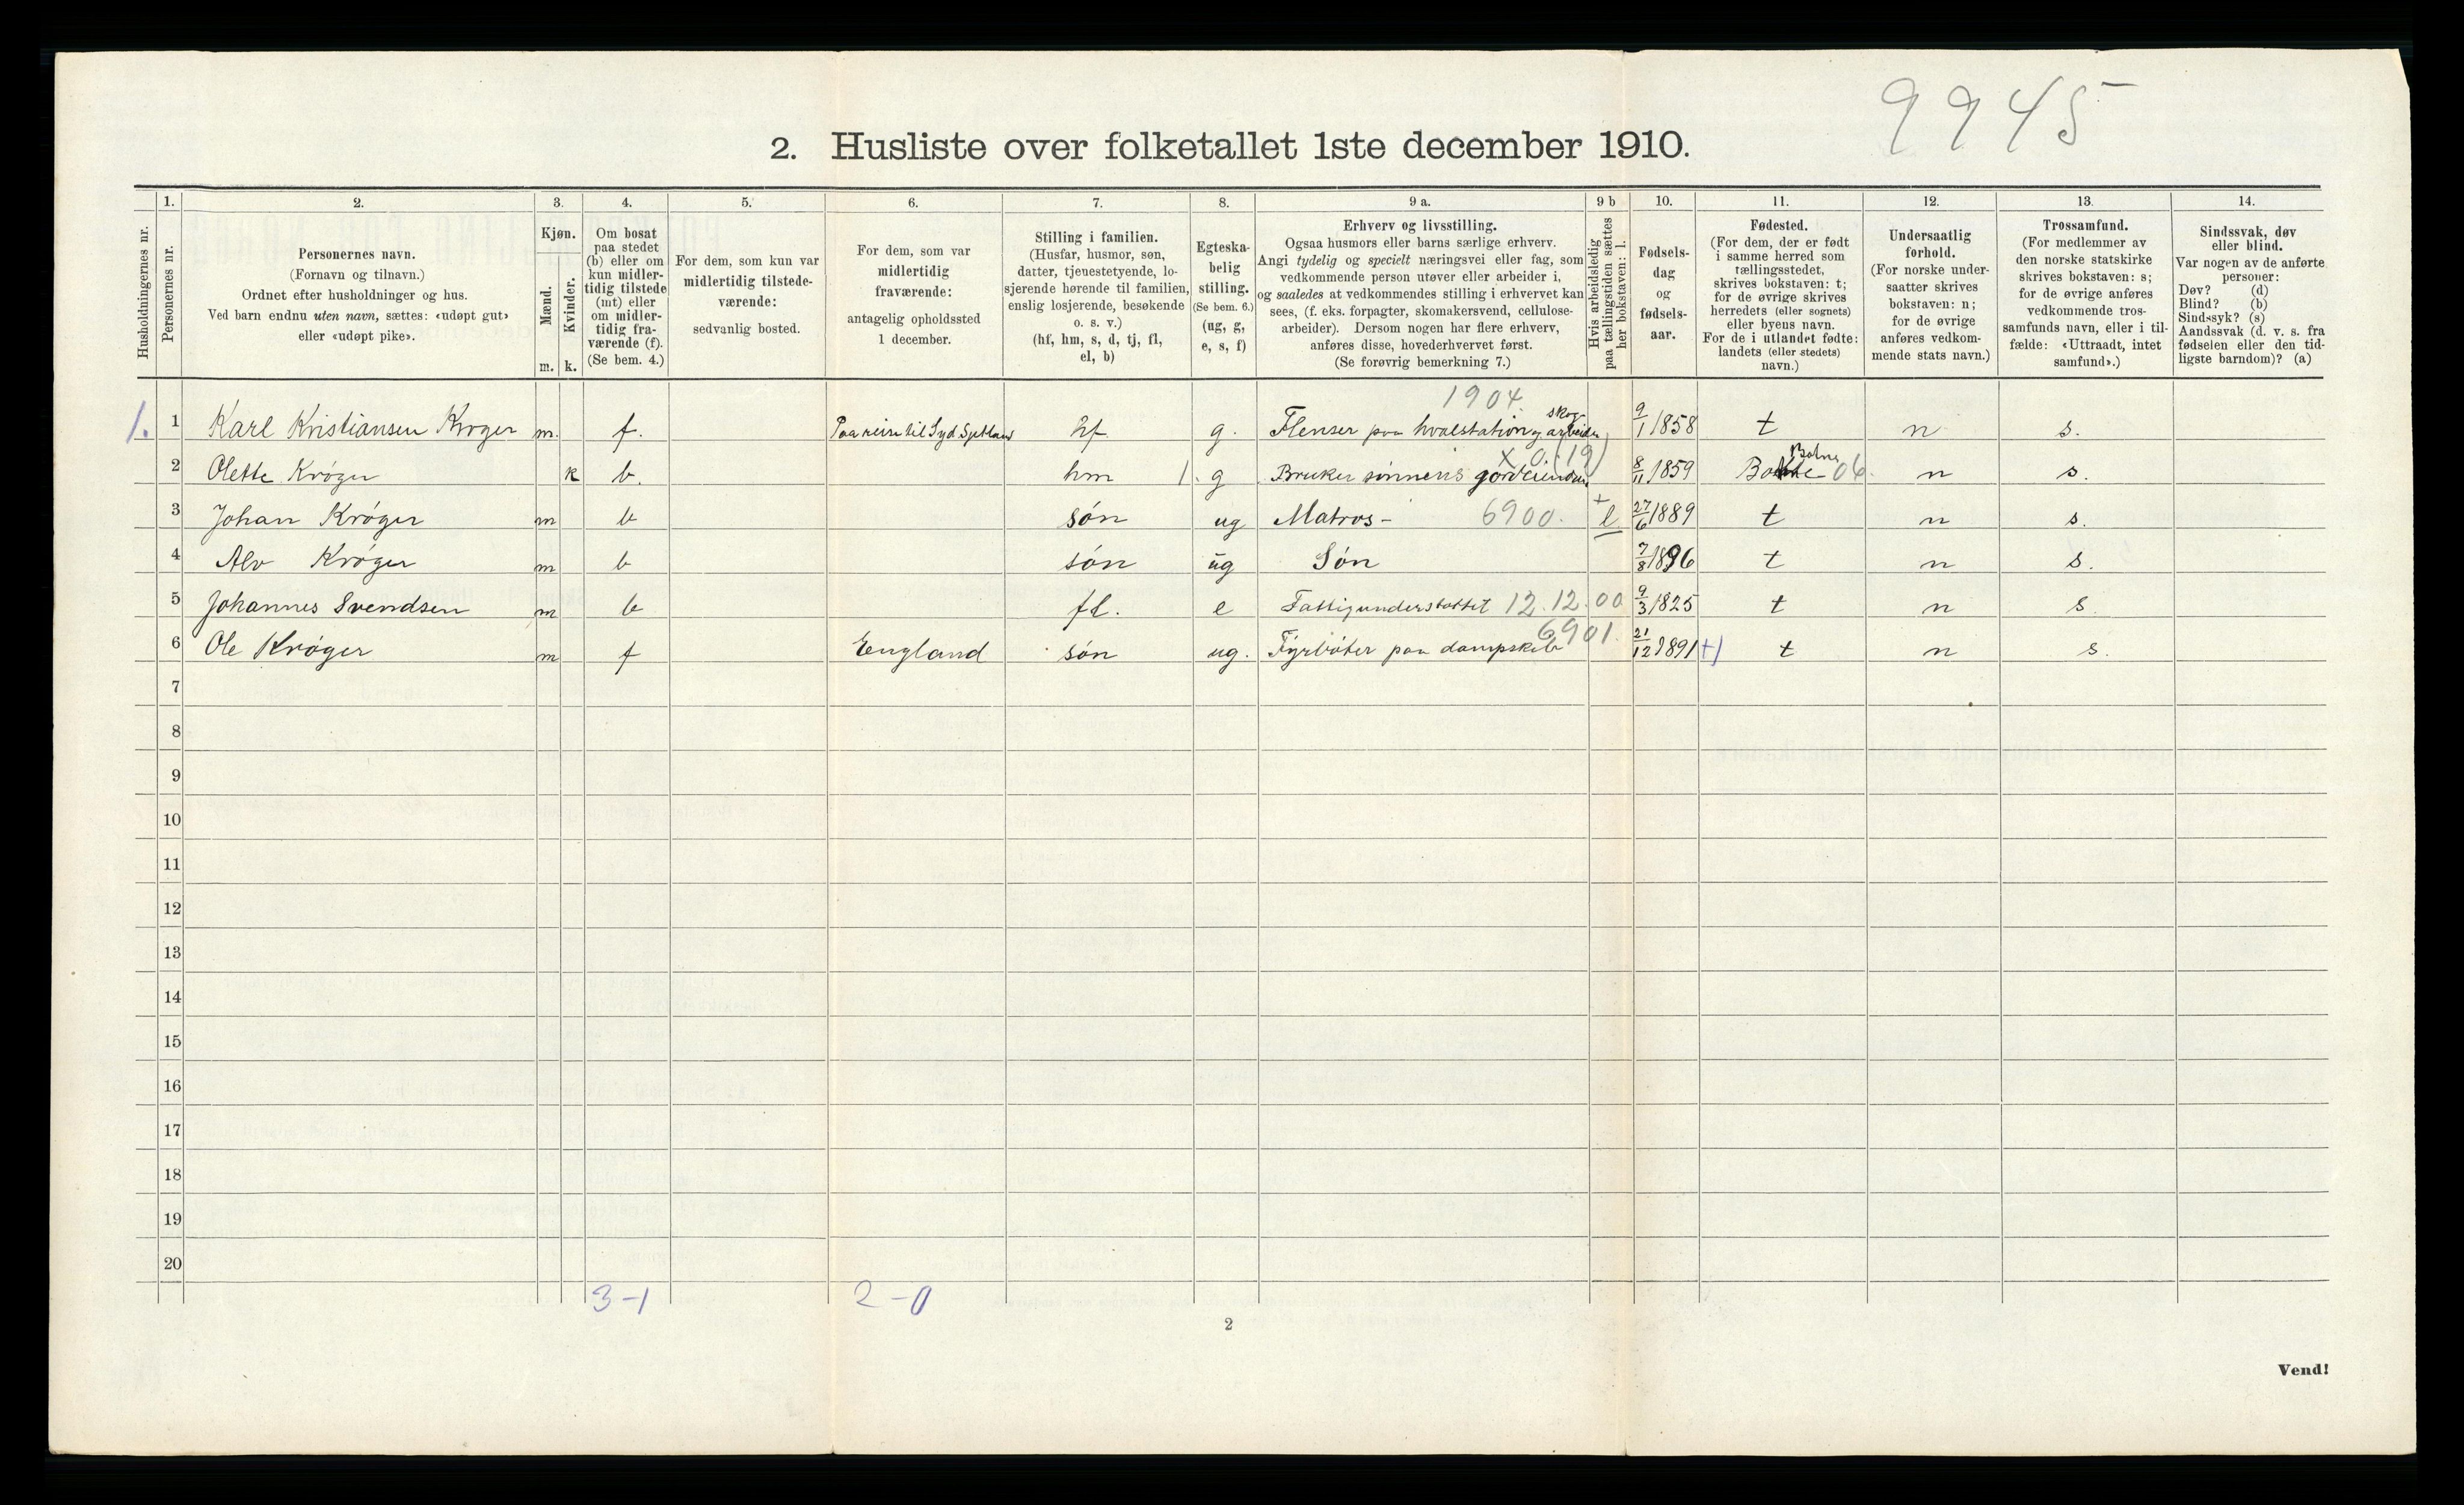 9945
2. Husliste over folketallet 1ste december 1910.
Husholdningernes nr.
1.
Personernes nr.
2.
Personernes navn.
(Fornavn og tilnavn.)
Ordnet efter husholdninger og hus.
Ved barn endnu uten navn, sættes: «udøpt gut»
eller «udøpt pike».
3.
Kjøn.
Mænd.
Kvinder.
m. k.
4.
Om bosat
paa stedet
(b) eller om
kun midler-
tidig tilstede
(mt) eller
om midler-
tidig fra-
værende (f).
(Se bem. 4.)
5.
For dem, som kun var
midlertidig tilstede-
værende:
sedvanlig bosted.
6.
For dem, som var
midlertidig
fraværende:
antagelig opholdssted
1 december.
7.
Stilling i familien.
(Husfar, husmor, søn,
datter, tjenestetyende, lo-
sjerende hørende til familien,
enslig losjerende, besøkende
o. s. v.)
(hf, hm, s, d, tj, fl,
el, b)
8.
Egteska-
belig
stilling.
(Se bem. 6.)
(ug, g,
e, s, f)
9 a.
Erhverv og livsstilling.
Ogsaa husmors eller barns særlige erhverv.
Angi tydelig og specielt næringsvei eller fag, som
vedkommende person utøver eller arbeider i,
og saaledes at vedkommendes stilling i erhvervet kan
sees, (f. eks. forpagter, skomakersvend, cellulose-
arbeider). Dersom nogen har flere erhverv,
anføres disse, hovederhvervet først.
(Se forøvrig bemerkning 7.)
9 b
Hvis arbeidsledig
paa tællingstiden sættes
her bokstaven: l.
10.
Fødsels-
dag
og
fødsels-
aar.
11.
Fødested.
(For dem, der er født
i samme herred som
tællingsstedet,
skrives bokstaven: t;
for de øvrige skrives
herredets (eller sognets)
eller byens navn.
For de i utlandet fødte:
landets (eller stedets)
navn.)
12.
Undersaatlig
forhold.
(For norske under-
saatter skrives
bokstaven: n;
for de øvrige
anføres vedkom-
mende stats navn.)
13.
Trossamfund.
(For medlemmer av
den norske statskirke
skrives bokstaven: s;
for de øvrige anføres
vedkommende tros-
samfunds navn, eller i til-
fælde: «Uttraadt, intet
samfund».)
14.
Sindssvak, døv
eller blind.
Var nogen av de anførte
personer:
Døv? (d)
Blind? (b)
Sindssyk? (s)
Aandssvak (d. v. s. fra
fødselen eller den tid-
ligste barndom)? (a)
1904
1. 1 Karl Kristiansen Krøger m. f. Paa reise til Syd Sjetland hf g. Flenser paa hvalstation og skog-arbeider 9/1 1858 t n s.
X 0.(19)
2 Olette Krøger k b. hm 1. g Bruker sønnens gårdeiendom 8/11 1859 Botne 06. n s.
3 Johan Krøger m b søn ug Matros - 6900. + l 27/6 1889 t n s.
4 Alv Krøger m b søn ug Søn 7/8 1896 t n s.
5 Johannes Svendsen m b fl. e Fattigunderstøttet 12.12.00 9/3 1825 t n s.
6901.
6 Ole Krøger m f England søn ug. Fyrbøter paa dampskib 21/12 1891 +) t n s.
7
8
9
10
11
12
13
14
15
16
17
18
19
20
3-1 2-0
2
Vend!